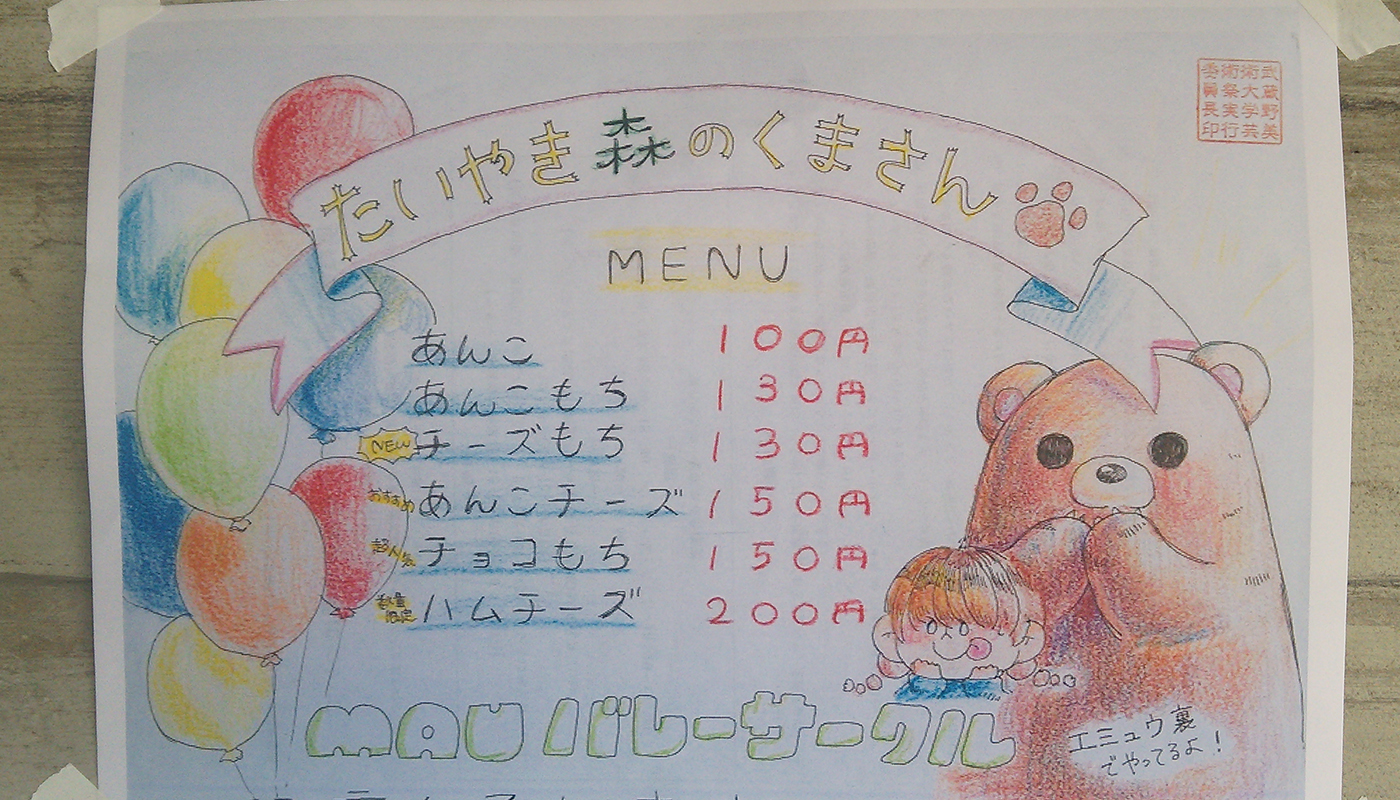 たいやき森のくまさん
MENU
あんこ 100円
あんこもち 130円
NEW チーズもち 130円
おすすめ あんこチーズ 150円
超人気 チョコもち 150円
数量限定 ハムチーズ 200円
MAUバレーサークル
エミュウ裏
でやってるよ!
武蔵野美
術大学芸
術祭実行
委員長印